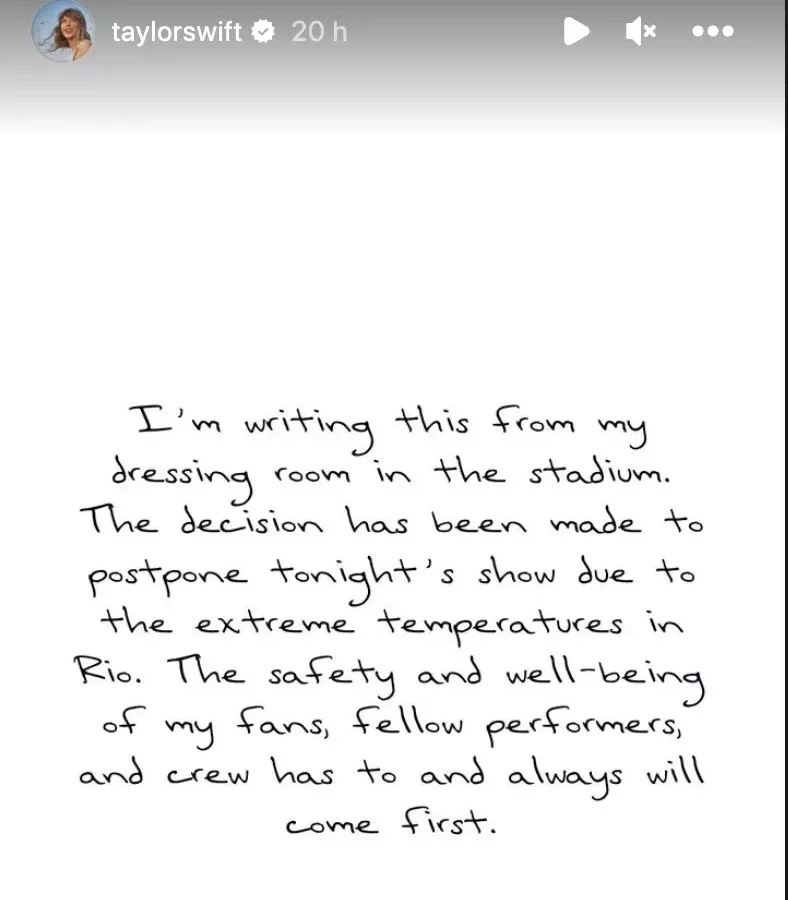 taylorswift 20 h
I'm writing this from my
dressing room in the stadium.
The decision has been made to
postpone tonight's show due to
the extreme temperatures in
Rio. The safety and well-being
of my fans, fellow performers,
and crew has to and always will
come first.